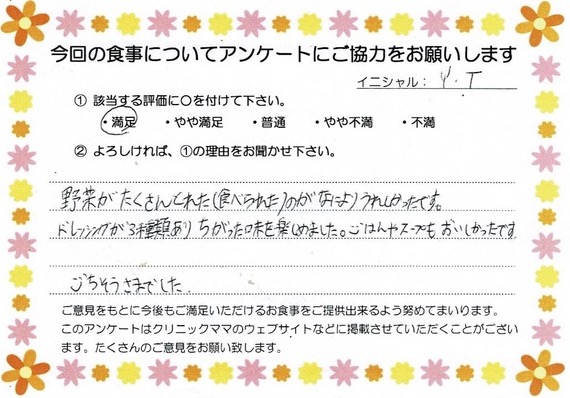 今回の食事についてアンケートにご協力をお願いします
イニシャル： Y・T
① 該当する評価に〇を付けて下さい。
・満足 ・やや満足 ・普通 ・やや不満 ・不満
② よろしければ、①の理由をお聞かせ下さい。
野菜がたくさんとれた(食べられた)のがなによりうれしかったです。
ドレッシングが3種類あり ちがった味を楽しめました。ごはんやスープもおいしかったです
ごちそうさまでした
ご意見をもとに今後もご満足いただけるお食事をご提供出来るよう努めてまいります。
このアンケートはクリニックママのウェブサイトなどに掲載させていただくことがござい
ます。たくさんのご意見をお願い致します。